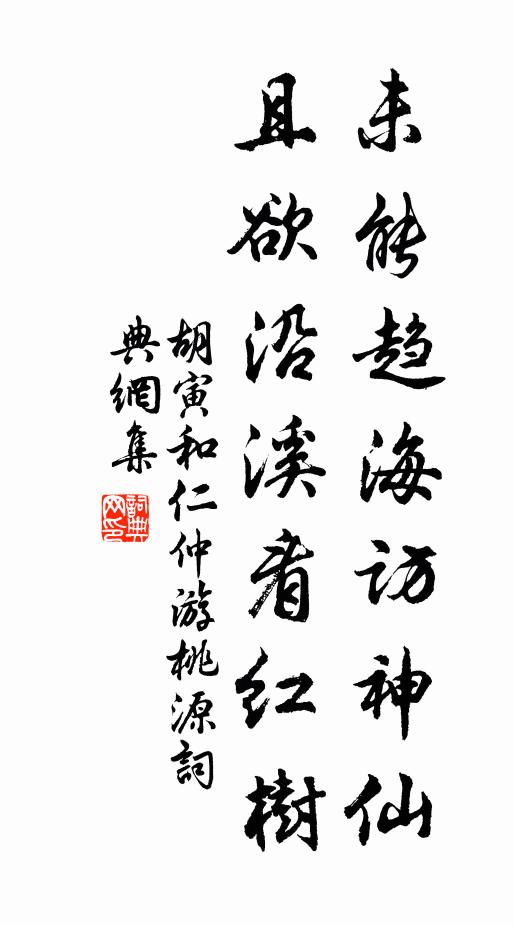 未能趋海访神仙
且欲沿溪看红樹
胡寅和仁仲游桃源詞
典網集
詞典
网印